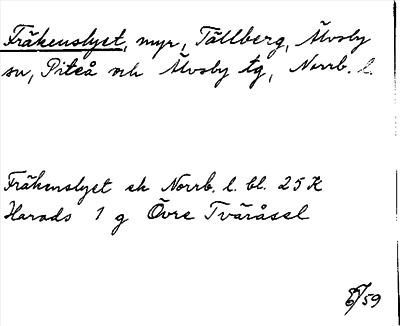 Fräkenslyet, myr, Tällberg, Älvsby
sn, Piteå och Älvsby tg, Norrb. l.
Fräkenslyet ek Norrb. l. bl. 25 K
Harads 1 g Övre Tväråsel
59